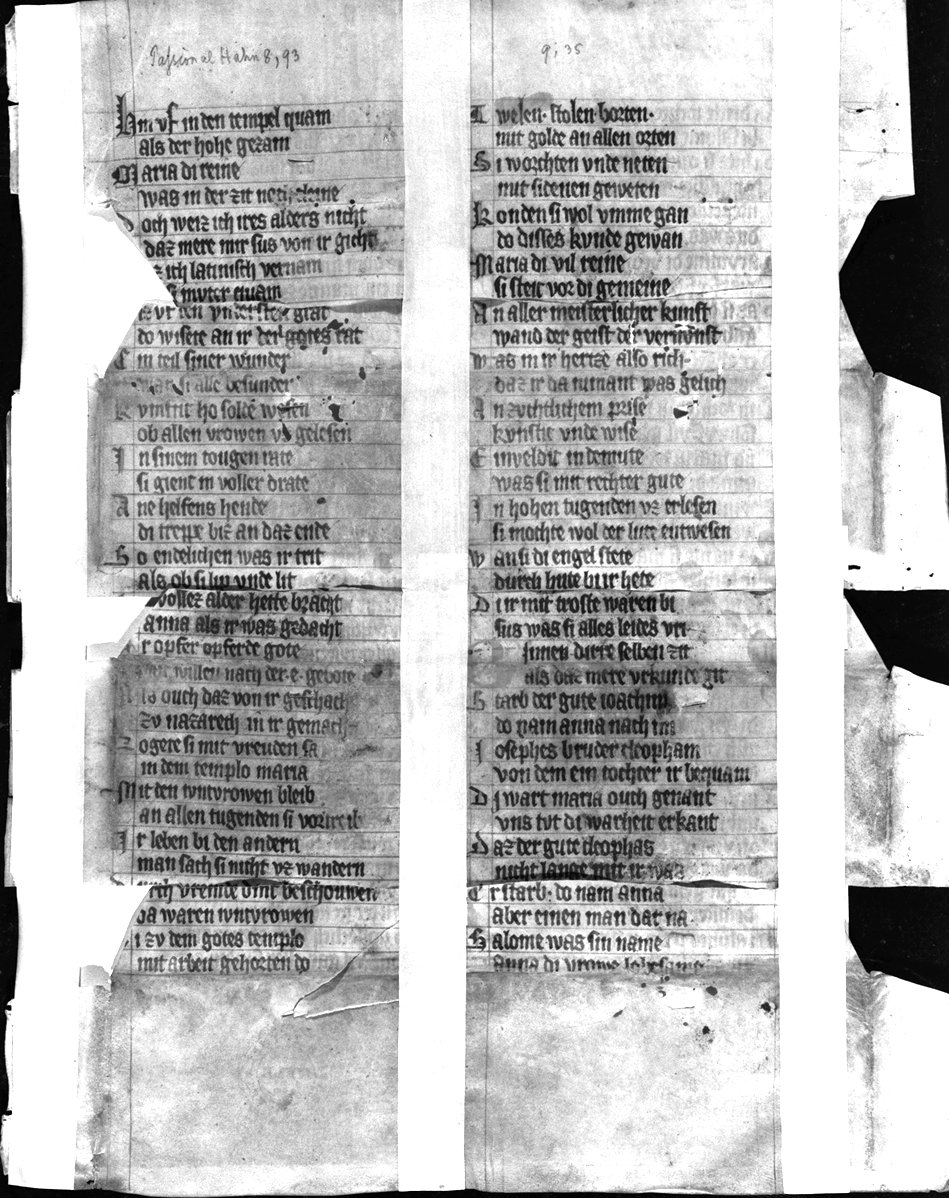 Passional Hahn 8,93
9,35
Hin vf in den tempel quam
als der hohe gezam
Maria di reine
was in der zit
Doch weiz ich ires alders nicht
daz mere mir sus von ir gicht
ich latinisch vernam
si mvter quam
vf den vndersten grat
do wisete an ir der gotes rat
Ein teil siner wunder
alle besunder
Kvmftic ho solde wesen
ob allen vrowen vz gelesen
In sinem tougen rate
si gienc in voller drate
Ane helfens hende
di treppe biz an daz ende
So endelichen was ir trit
als ob si lip vnde lit
vollez alder hette bracht
anna als ir was gedacht
Ir opfer opferde gote
willen nach der e gebote
ouch daz von ir geschach
zv nazareth in ir gemach
Zogete si mit vreuden sa
in dem templo maria
Mit den ivncvrowen bleib
an allen tugenden si vortreib
Ir leben bi den andern
man sach si nicht vz wandern
Durch vremde dinc beschouwen
da waren ivncvrowen
Di zv dem gotes templo
mit arbeit gehorten do
Twelen. stolen. borten.
mit golde an allen orten
Si worchten vnde neten
mit sidenen geweten
Konden si wol vmme gan
do disses kvnde gewan
Maria di vil reine
si steic vor di gemeine
An aller meisterlicher kunst
wand der geist der vernvnst
was in ir hertze also rich
daz ir da niman was gelich
An zvchtlichem prise
kvnstic vnde wise
Einveldic in demute
was si mit rechter gute
In hohen tugenden vz erlesen
si mochte wol der lute entwesen
wan si di engel stete
durch hute bi ir hete
Di ir mit troste waren bi
sus was si alles leides vri
Innen dirre selben zit
als daz mere vrkunde git
Starb der gute ioachim
do nam anna nach im
Iosephes bruder cleopham
von dem ein tochter ir bequam
Di wart maria ouch genant
vns tvt di warheit erkant
Daz der gute cleophas
nicht lange mit ir was
Er starb. do nam anna
aber einen man dar na.
Salome was sin name
anna di vrowe lobesame